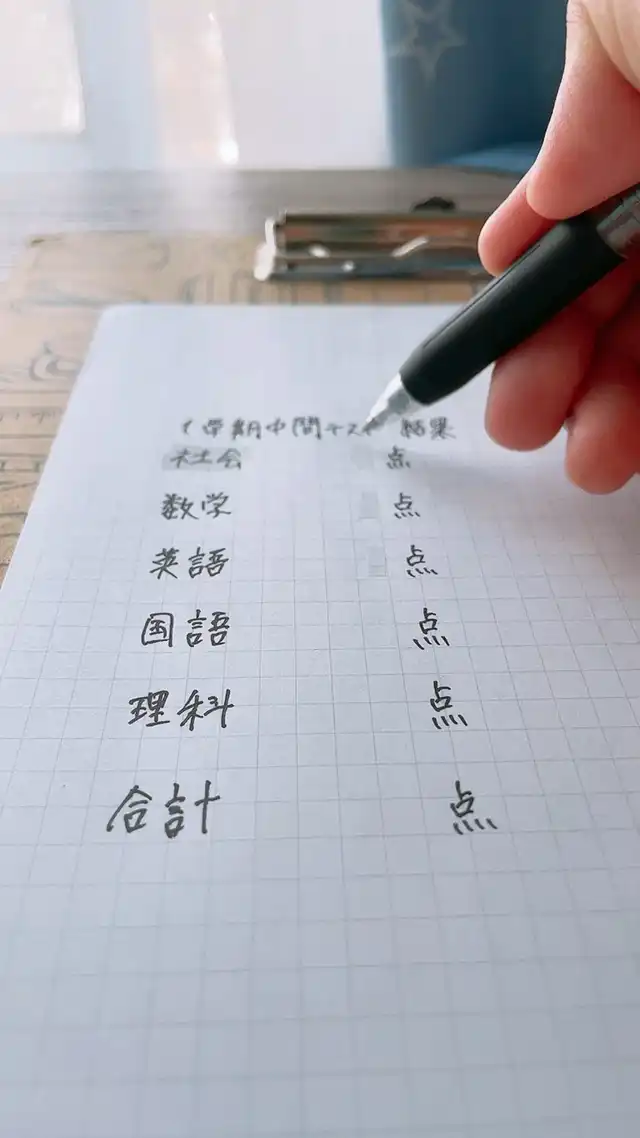 1学期中間テスト 結果
社会 点
数学 点
英語 点
国語 点
理科 点
合計 点